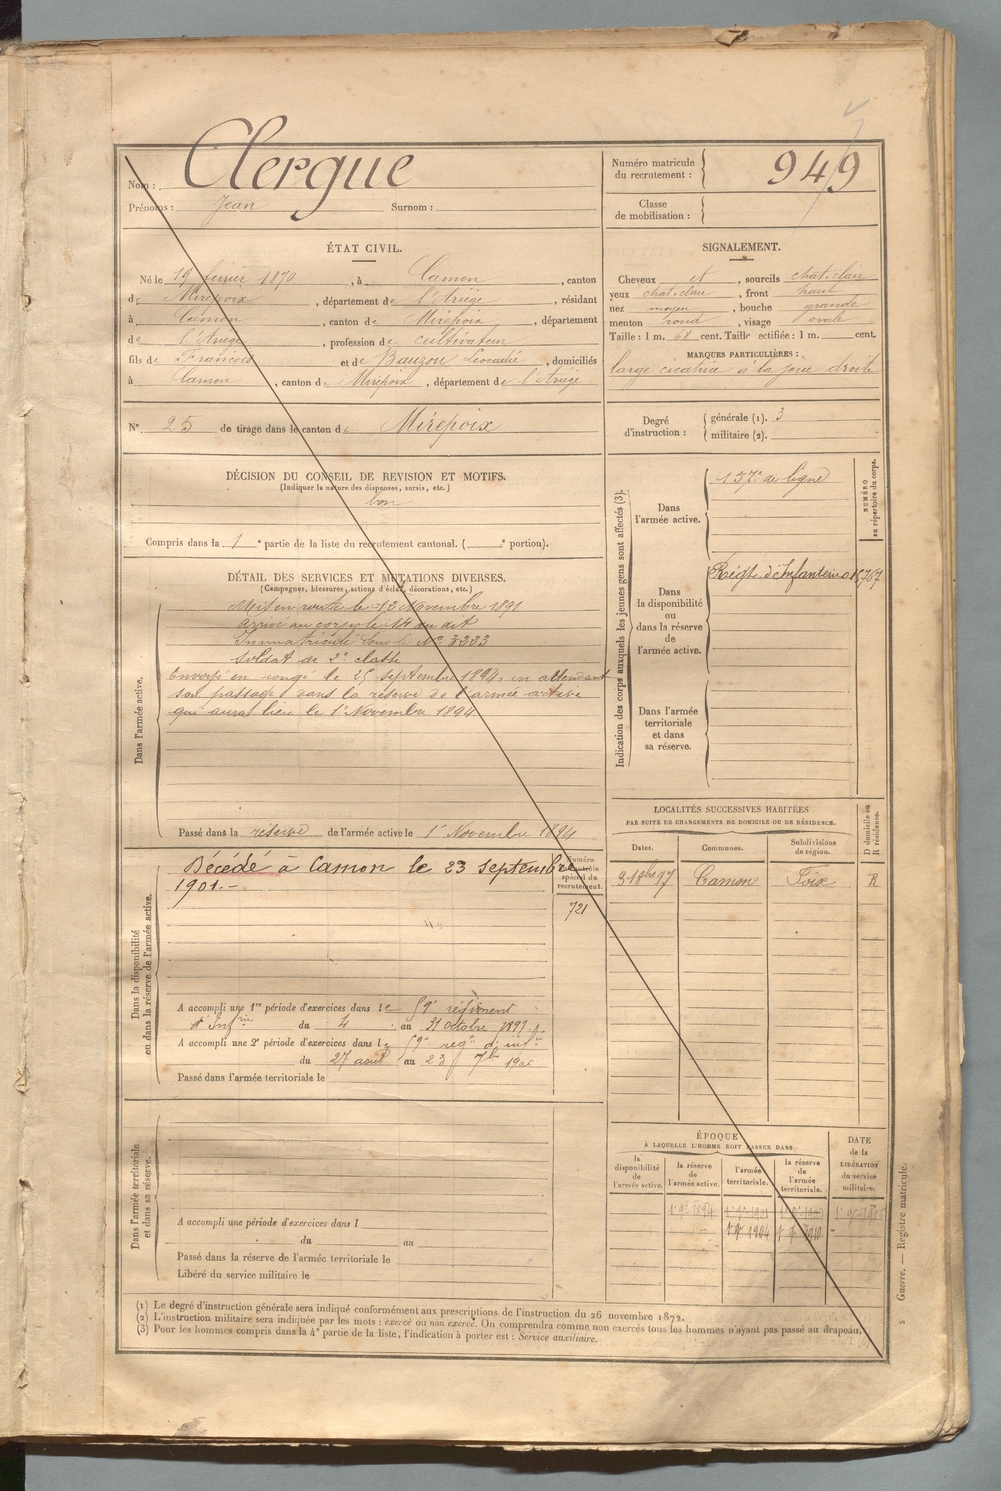 Clergue
Nom :
Prénoms : Jean Surnom :
Numéro matricule
du recrutement : 949
Classe
de mobilisation :
ÉTAT CIVIL.
Né le 19 février 1870, à Camon, canton
de Mirepoix, département de l'Ariège, résidant
à Camon, canton de Mirepoix, département
de l'Ariège, profession de cultivateur
fils de François et de Bauzou Léocadie, domiciliés
à Camon, canton de Mirepoix, département de l'Ariège
SIGNALEMENT.
Cheveux et, sourcils chat. clair
yeux chat. clair, front haut
nez moyen, bouche grande
menton rond, visage ovale
Taille : 1 m. 68 cent. Taille rectifiée : 1 m. cent.
MARQUES PARTICULIÈRES :
large cicatrice à la joue droite
N° 25 de tirage dans le canton de Mirepoix
Degré
d'instruction :
générale (1). 3
militaire (2).
DÉCISION DU CONSEIL DE REVISION ET MOTIFS.
(Indiquer la nature des dispenses, sursis, etc.)
bon
Compris dans la 1e partie de la liste du recrutement cantonal. ( e portion).
DÉTAIL DES SERVICES ET MUTATIONS DIVERSES.
(Campagnes, blessures, actions d'éclat, décorations, etc.)
Dans l'armée active.
Mis en route le 13 Novembre 1891
Arrivé au corps le 14 du dit
Immatriculé sous le N° 3333
Soldat de 2e classe
Envoyé en congé le 25 septembre 1894, en attendant
son passage dans la réserve de l'armée active
qui aura lieu le 1er Novembre 1894
Passé dans la réserve de l'armée active le 1er Novembre 1894
Indication des corps auxquels les jeunes gens sont affectés (3).
NUMÉRO
au répertoire du corps.
Dans
l'armée active.
157e de ligne
Dans
la disponibilité
ou
dans la réserve
de
l'armée active.
Régt d'Infanterie
Dans l'armée
territoriale
et dans
sa réserve.
LOCALITÉS SUCCESSIVES HABITÉES
PAR SUITE DE CHANGEMENTS DE DOMICILE OU DE RÉSIDENCE.
Dates. Communes. Subdivisions
de région.
D domicile ou
R résidence.
Camon Foix R
Dans la disponibilité
ou dans la réserve de l'armée active.
Décédé à Camon le 23 Septembre
1901.-
Numéro
au contrôle
spécial du
recrutement.
721
A accompli une 1re période d'exercices dans le 59e régiment
d'Infrie du 4 au 31 octobre 1897
A accompli une 2e période d'exercices dans le 59e régt d'infie
du 27 août au 23 7bre
Passé dans l'armée territoriale le
Dans l'armée territoriale
et dans sa réserve.
A accompli une période d'exercices dans l
du au
Passé dans la réserve de l'armée territoriale le
Libéré du service militaire le
ÉPOQUE
À LAQUELLE L'HOMME DOIT PASSER DANS
la
disponibilité
de
l'armée active.
la réserve
de
l'armée active.
l'armée
territoriale.
la réserve
de
l'armée
territoriale.
DATE
de la
LIBÉRATION
du service
militaire.
1er 9bre 1894
1er 9bre 1904 1er 9bre 1910
(1) Le degré d'instruction générale sera indiqué conformément aux prescriptions de l'instruction du 26 novembre 1872.
(2) L'instruction militaire sera indiquée par les mots : exercé ou non exercé. On comprendra comme non exercés tous les hommes n'ayant pas passé au drapeau.
(3) Pour les hommes compris dans la 4e partie de la liste, l'indication à porter est : Service auxiliaire.
2 Guerre. — Registre matricule.